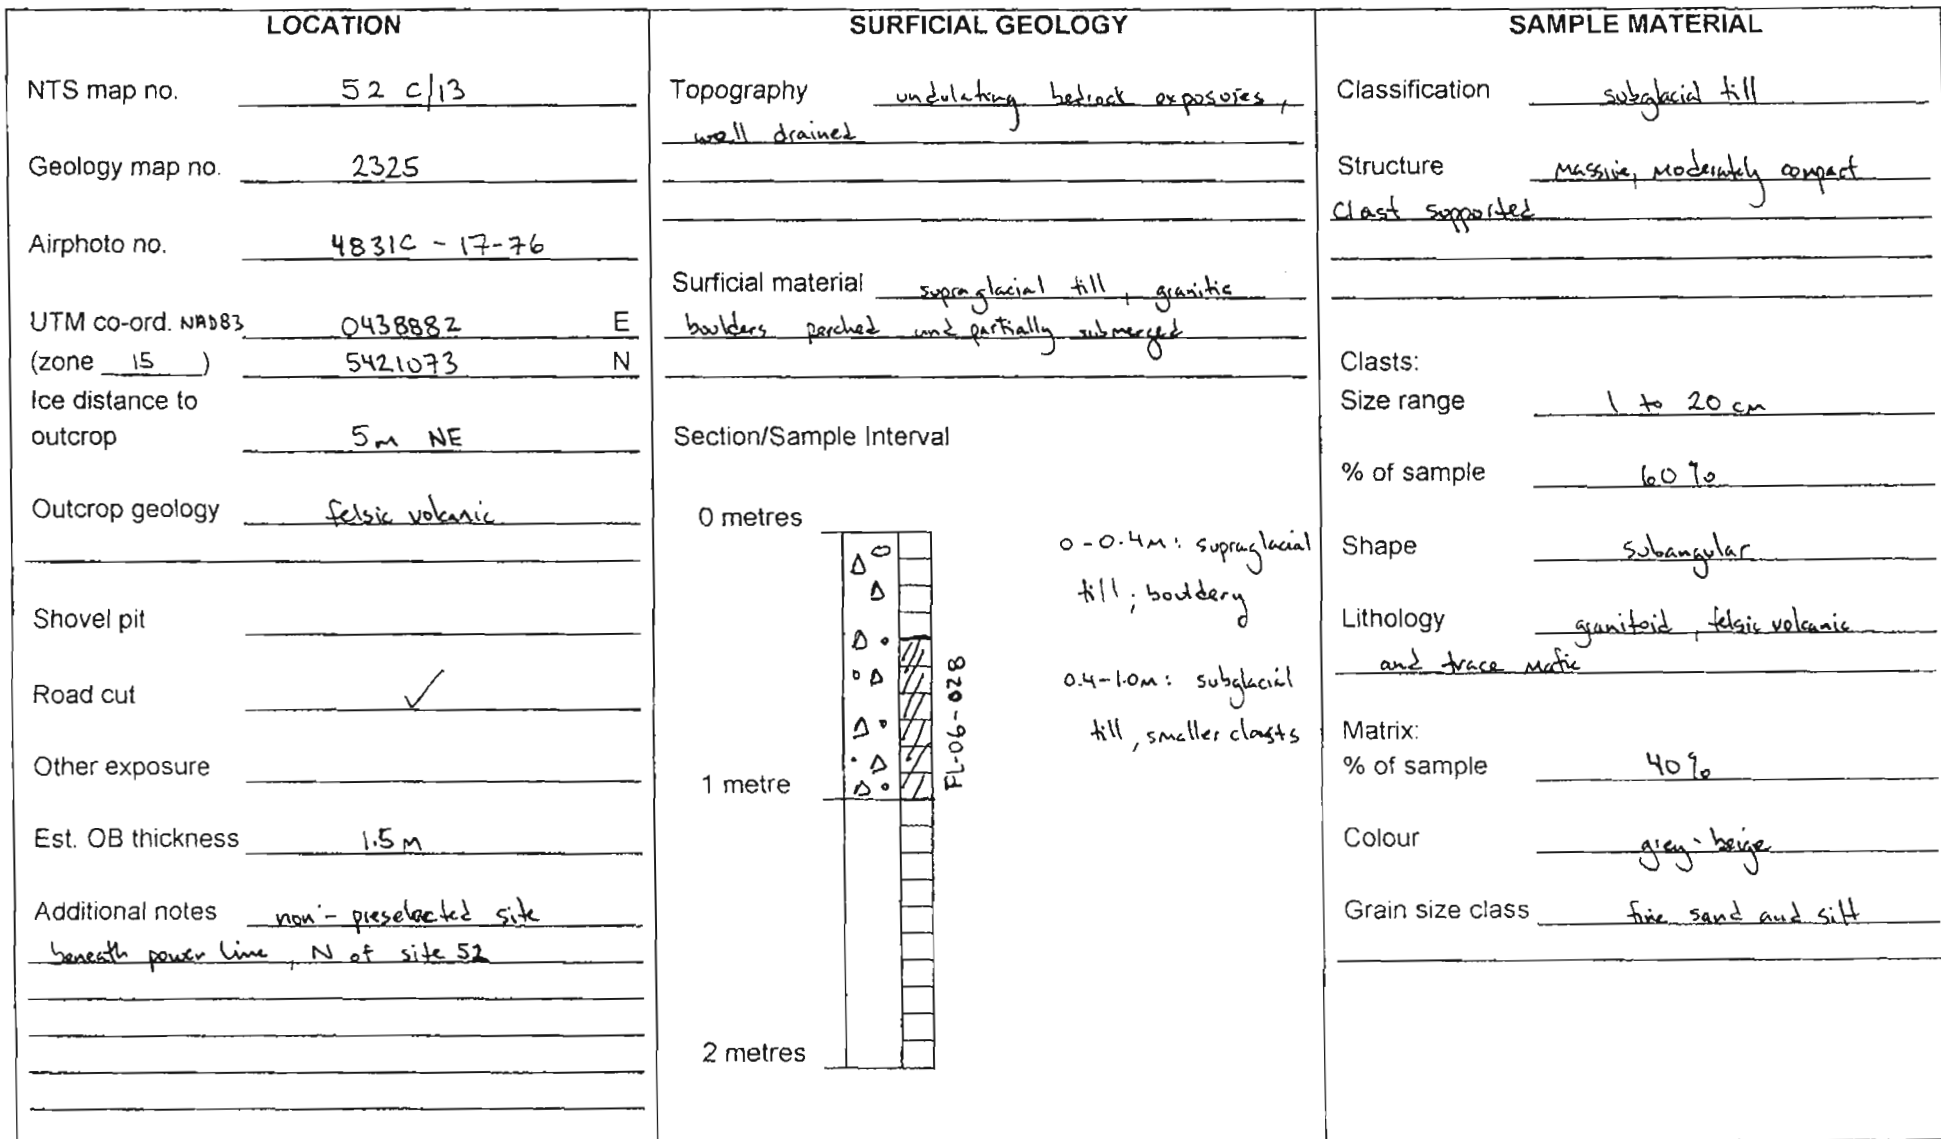 LOCATION
NTS map no. 52 C/13
Geology map no. 2325
Airphoto no. 4831C - 17-76
UTM co-ord. NAD83 0438882 E
(zone 15 ) 5421073 N
Ice distance to
outcrop 5m NE
Outcrop geology felsic volcanic
Shovel pit
Road cut ✓
Other exposure
Est. OB thickness 1.5 m
Additional notes non-preselected site
beneath power line, N of site 52
SURFICIAL GEOLOGY
Topography undulating bedrock exposures,
well drained
Surficial material supraglacial till, granitic
boulders perched and partially submerged
Section/Sample Interval
0 metres
0-0.4m: supraglacial
till; bouldery
FL-06-028
0.4-1.0m: subglacial
till, smaller clasts
1 metre
2 metres
SAMPLE MATERIAL
Classification subglacial till
Structure Massive, Moderately compact
Clast supported
Clasts:
Size range 1 to 20 cm
% of sample 60%
Shape subangular
Lithology granitoid, felsic volcanic
and trace mafic
Matrix:
% of sample 40%
Colour grey-beige
Grain size class fine sand and silt